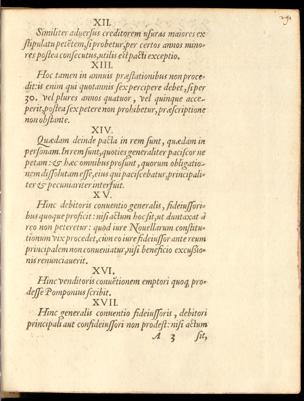 XII.
Similiter adversus creditorem usuras maiores ex
stipulatu petētem, si probetur, per certos annos mino-
res postea consecutus, utilis est pacti exceptio.
XIII.
Hoc tamen in annuis præstationibus non proce-
dit: is enim qui quotannis sex percipere debet, si per
30. vel plures annos quatuor, vel quinque acce-
perit, postea sex petere non prohibetur, præscriptione
non obstante.
XIV.
Quædam deinde pacta in rem sunt, quædam in
personam. In rem sunt, quoties generaliter paciscor ne
petam: & hæc omnibus prosunt, quorum obligatio-
nem dissolutam esse, eius qui paciscebatur, principali-
ter & pecuniariter interfuit.
XV.
Hinc debitoris conventio generalis, fideiussori-
bus quoque proficit: nisi actum hoc sit, ut duntaxat à
reo non peteretur: quod iure Novellarum constitu-
tionum vix procedet, cùm eo iure fideiussor ante reum
principalem non conveniatur, nisi beneficio excussio-
nis renunciaverit.
XVI.
Hinc venditoris conuētionem emptori quoq; pro-
desse Pomponius scribit.
XVII.
Hinc generalis conventio fideiussoris, debitori
principali aut confideiussori non prodest: nisi actum
A 3 sit,